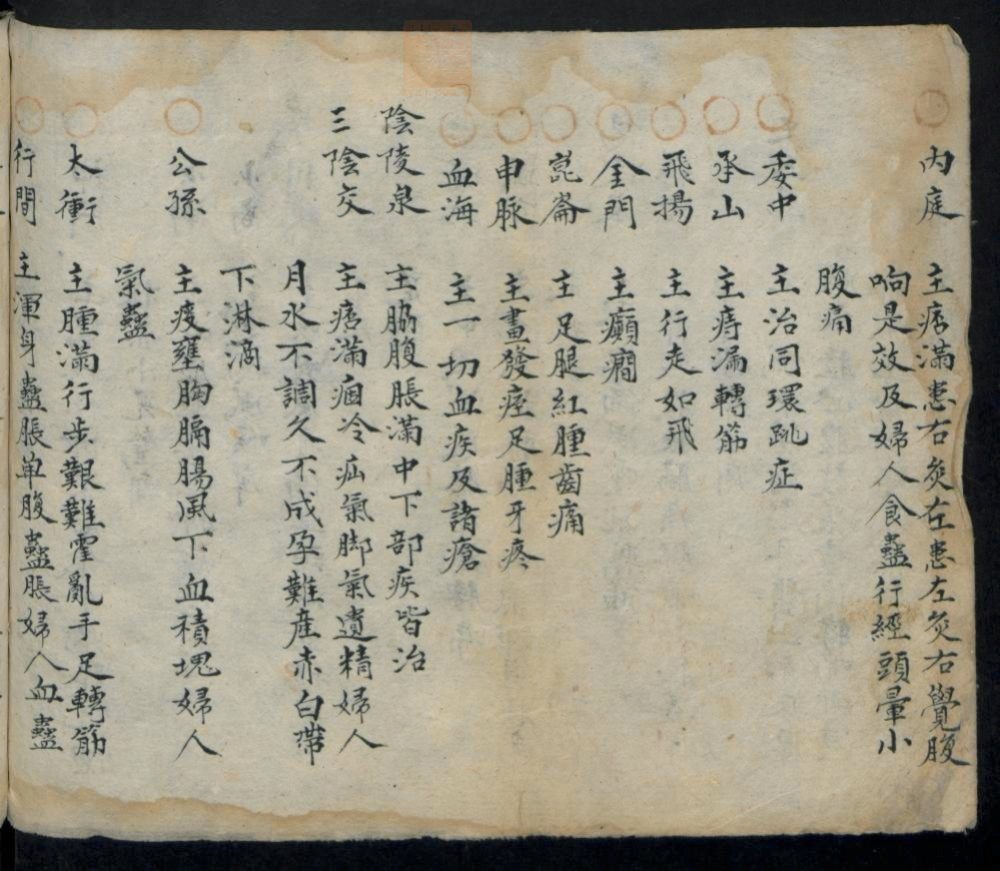 內庭 主痞滿患右灸左患左灸右覺腹
响是效及婦人食蠱行經頭暈小
腹痛
委中 主治同環跳症
承山 主痔漏轉筋
飛揚 主行走如飛
金門 主癲癇
崑崙 主足腿紅腫齒痛
申脉 主晝發痙足腫牙疼
血海 主一切血疾及諸瘡
陰陵泉 主脇腹脹滿中下部疾皆治
三陰交 主痞滿痼冷疝氣脚氣遺精婦人
月水不調久不成孕難產赤白帶
下淋滴
公孫 主痰壅胸膈腸風下血積塊婦人
氣蠱
太衝 主腫滿行步艱難霍亂手足轉筋
行間 主渾身蠱脹单腹蠱脹婦人血蠱